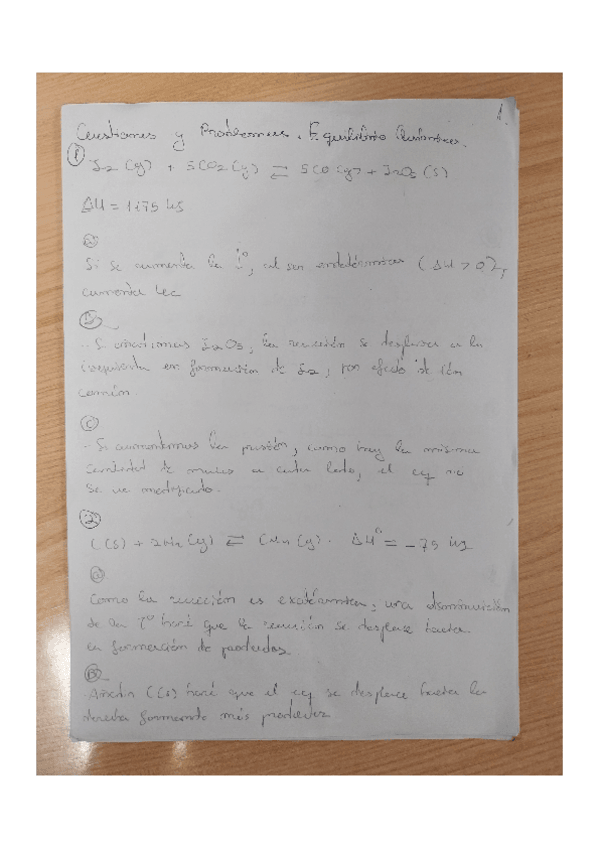 1.
Cuestiones y Problemas. Equilibrio Químico.
① I2 (g) + 5CO2 (g) ⇌ 5CO (g) + I2O5 (s)
ΔH = 1175 kJ
a)
Si se aumenta la Tº, al ser endotérmica (ΔH > 0),
aumenta kc
b)
- Si añadimos I2O5, la reacción se desplaza a la
izquierda en formación de I2, por efecto de ión
común.
c)
- Si aumentamos la presión, como hay la misma
cantidad de moles a cada lado, el eq no
se ve modificado.
②
C(s) + 2H2 (g) ⇌ CH4 (g). ΔHº = -75 kJ
a)
Como la reacción es exotérmica, una disminución
de la Tº hará que la reacción se desplace hacia
la formación de productos.
b)
- Añadir C(s) hará que el eq se desplace hacia la
derecha formando más productos